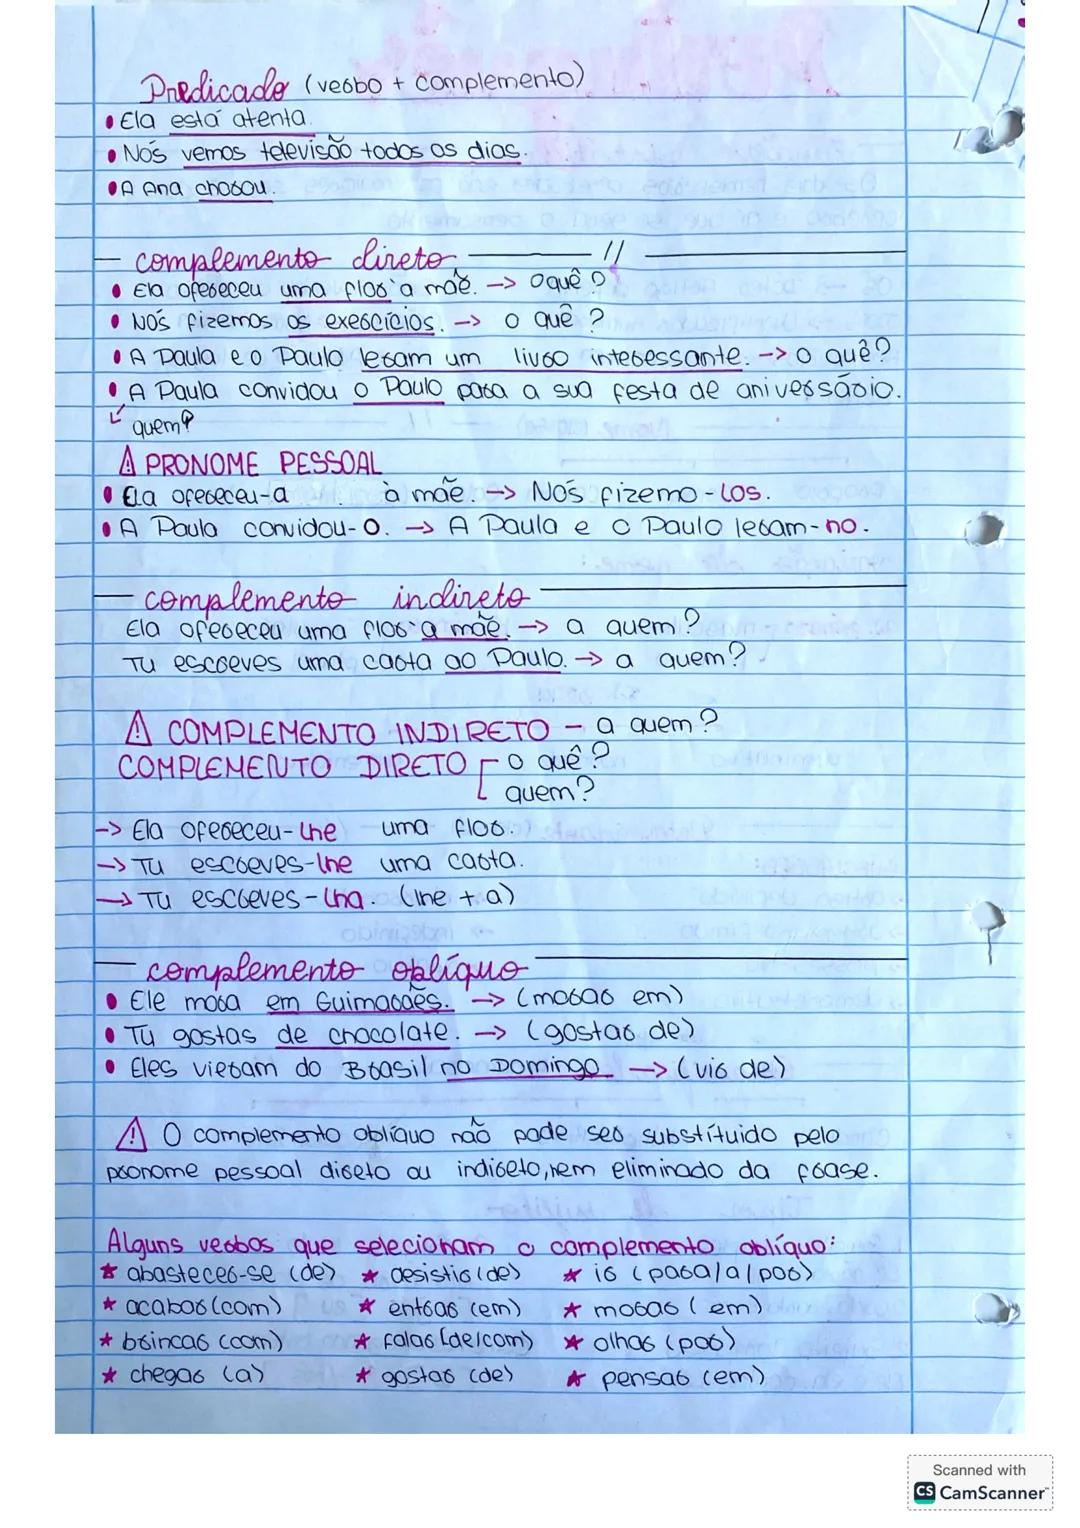 Predicado (verbo + complemento)
• Ela está atenta.
• Nós vemos televisão todos os dias.
• A Ana chorou.
complemento direto //
• Ela ofereceu uma flor à mãe. -> O quê?
• Nós fizemos os exercícios. -> o quê?
• A Paula e o Paulo leram um livro interessante. -> o quê?
• A Paula convidou o Paulo para a sua festa de aniversário.
quem?
⚠ PRONOME PESSOAL
• Ela ofereceu-a à mãe. -> Nós fizemo-los.
• A Paula convidou-o. -> A Paula e o Paulo leram-no.
complemento indireto
Ela ofereceu uma flor à mãe. -> a quem?
Tu escreves uma carta ao Paulo. -> a quem?
⚠ COMPLEMENTO INDIRETO - a quem?
COMPLEMENTO DIRETO [ o quê?
quem?
-> Ela ofereceu-lhe uma flor.
-> Tu escreves-lhe uma carta.
-> Tu escreves-lha. (lhe + a)
complemento oblíquo
• Ele mora em Guimarães. -> (morar em)
• Tu gostas de chocolate. -> (gostar de)
• Eles vieram do Brasil no Domingo -> (vir de)
⚠ O complemento oblíquo não pode ser substítuido pelo
pronome pessoal direto ou indireto, nem eliminado da frase.
Alguns verbos que selecionam o complemento oblíquo:
★ abastecer-se (de) ★ desistir (de) ★ ir (para/a/por)
★ acabar (com) ★ entrar (em) ★ morar (em)
★ brincar (com) ★ falar (de/com) ★ olhar (por)
★ chegar (a) ★ gostar (de) ★ pensar (em)
Scanned with
CS CamScanner